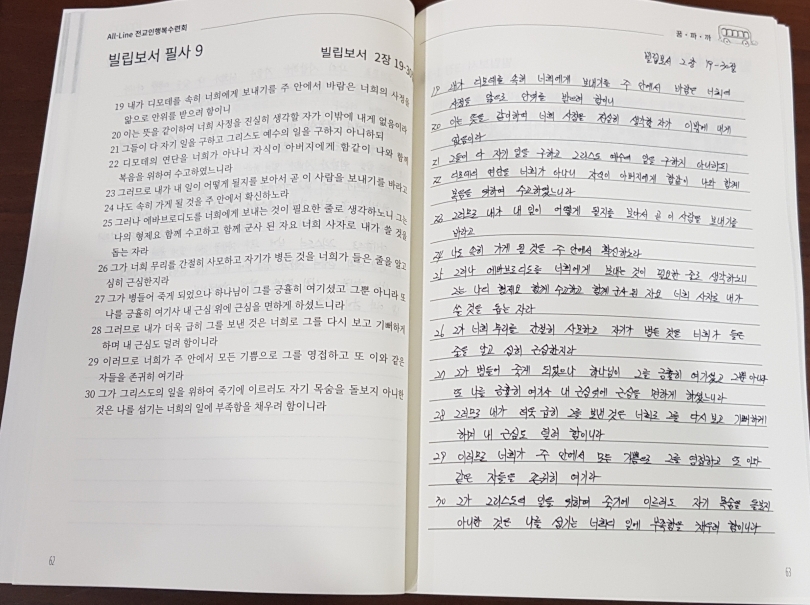 All-Line 전교인행복수련회
빌립보서 필사 9
빌립보서 2장 19-30
19 내가 디모데를 속히 너희에게 보내기를 주 안에서 바람은 너희의 사정을
앎으로 안위를 받으려 함이니
20 이는 뜻을 같이하여 너희 사정을 진실히 생각할 자가 이밖에 내게 없음이라
21 그들이 다 자기 일을 구하고 그리스도 예수의 일을 구하지 아니하되
22 디모데의 연단을 너희가 아나니 자식이 아버지에게 함같이 나와 함께
복음을 위하여 수고하였느니라
23 그러므로 내가 내 일이 어떻게 될지를 보아서 곧 이 사람을 보내기를 바라고
24 나도 속히 가게 될 것을 주 안에서 확신하노라
25 그러나 에바브로디도를 너희에게 보내는 것이 필요한 줄로 생각하노니 그는
나의 형제요 함께 수고하고 함께 군사 된 자요 너희 사자로 내가 쓸 것을
돕는 자라
26 그가 너희 무리를 간절히 사모하고 자기가 병든 것을 너희가 들은 줄을 알고
심히 근심한지라
27 그가 병들어 죽게 되었으나 하나님이 그를 긍휼히 여기셨고 그뿐 아니라 또
나를 긍휼히 여기사 내 근심 위에 근심을 면하게 하셨느니라
28 그러므로 내가 더욱 급히 그를 보낸 것은 너희로 그를 다시 보고 기뻐하게
하며 내 근심도 덜려 함이니라
29 이러므로 너희가 주 안에서 모든 기쁨으로 그를 영접하고 또 이와 같은
자들을 존귀히 여기라
30 그가 그리스도의 일을 위하여 죽기에 이르러도 자기 목숨을 돌보지 아니한
것은 나를 섬기는 너희의 일에 부족함을 채우려 함이니라
62
꿈·따·까
빌립보서 2장 19-30절
19 내가 디모데를 속히 너희에게 보내기를 주 안에서 바람은 너희의
사정을 앎으로 안위를 받으려 함이니
20 이는 뜻을 같이하여 너희 사정을 진실히 생각할 자가 이밖에 내게
없음이라
21 그들이 다 자기 일을 구하고 그리스도 예수의 일을 구하지 아니하되
22 디모데의 연단을 너희가 아나니 자식이 아버지에게 함같이 나와 함께
복음을 위하여 수고하였느니라
23 그러므로 내가 내 일이 어떻게 될지를 보아서 곧 이 사람을 보내기를
바라고
24 나도 속히 가게 될 것을 주 안에서 확신하노라
25 그러나 에바브로디도를 너희에게 보내는 것이 필요한 줄로 생각하노니
그는 나의 형제요 함께 수고하고 함께 군사 된 자요 너희 사자로 내가
쓸 것을 돕는 자라
26 그가 너희 무리를 간절히 사모하고 자기가 병든 것을 너희가 들은
줄을 알고 심히 근심한지라
27 그가 병들어 죽게 되었으나 하나님이 그를 긍휼히 여기셨고 그뿐 아니라
또 나를 긍휼히 여기사 내 근심위에 근심을 면하게 하셨느니라
28 그러므로 내가 더욱 급히 그를 보낸 것은 너희로 그를 다시 보고 기뻐하게
하며 내 근심도 덜려 함이니라
29 이러므로 너희가 주 안에서 모든 기쁨으로 그를 영접하고 또 이와
같은 자들을 존귀히 여기라
30 그가 그리스도의 일을 위하여 죽기에 이르러도 자기 목숨을 돌보지
아니한 것은 나를 섬기는 너희의 일에 부족함을 채우려 함이니라
63